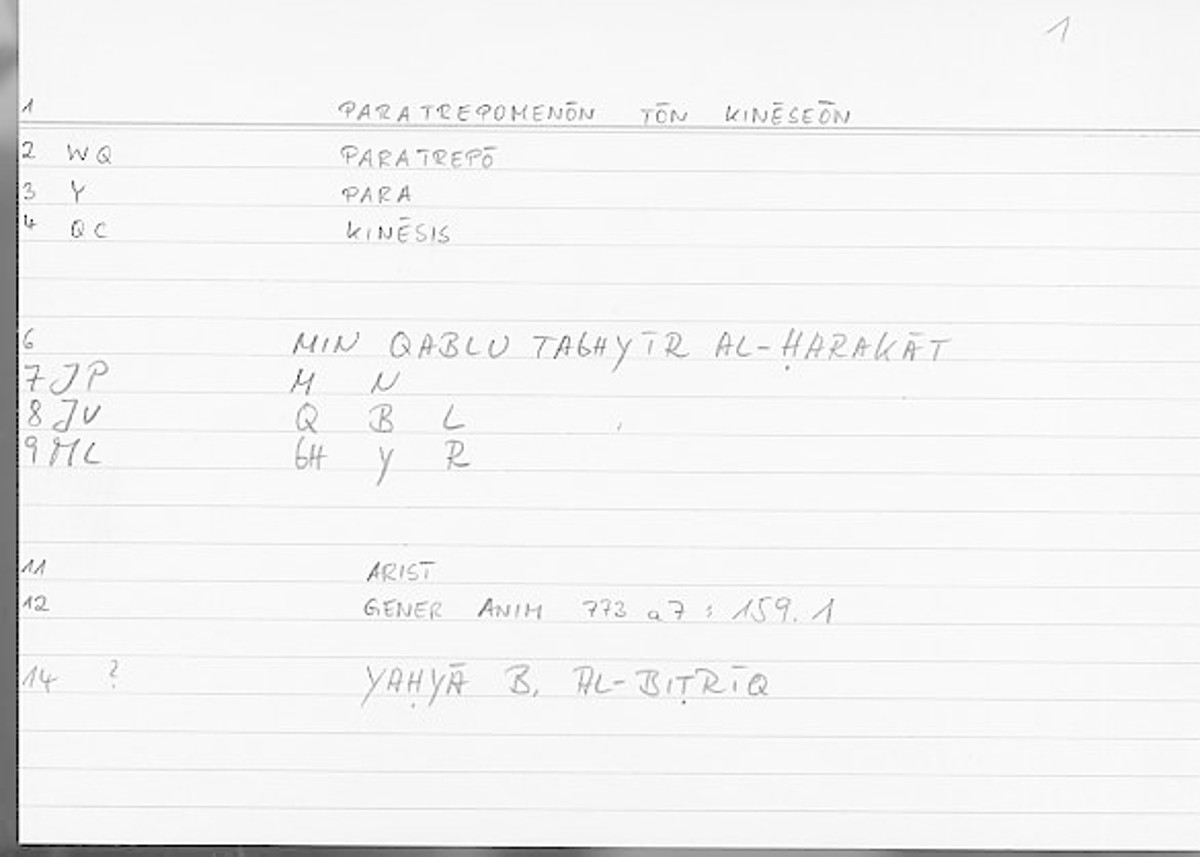 1
1 PARATREPOMENŌN TŌN KINĒSEŌN
2 WQ PARATREPŌ
3 Y PARA
4 QC KINĒSIS
6 MIN QABLU TAGHYĪR AL-ḤARAKĀT
7 JP M N
8 JV Q B L
9 ML GH Y R
11 ARIST
12 GENER ANIM 773 a7 : 159.1
14 ? YAḤYĀ B. AL-BIṬRĪQ